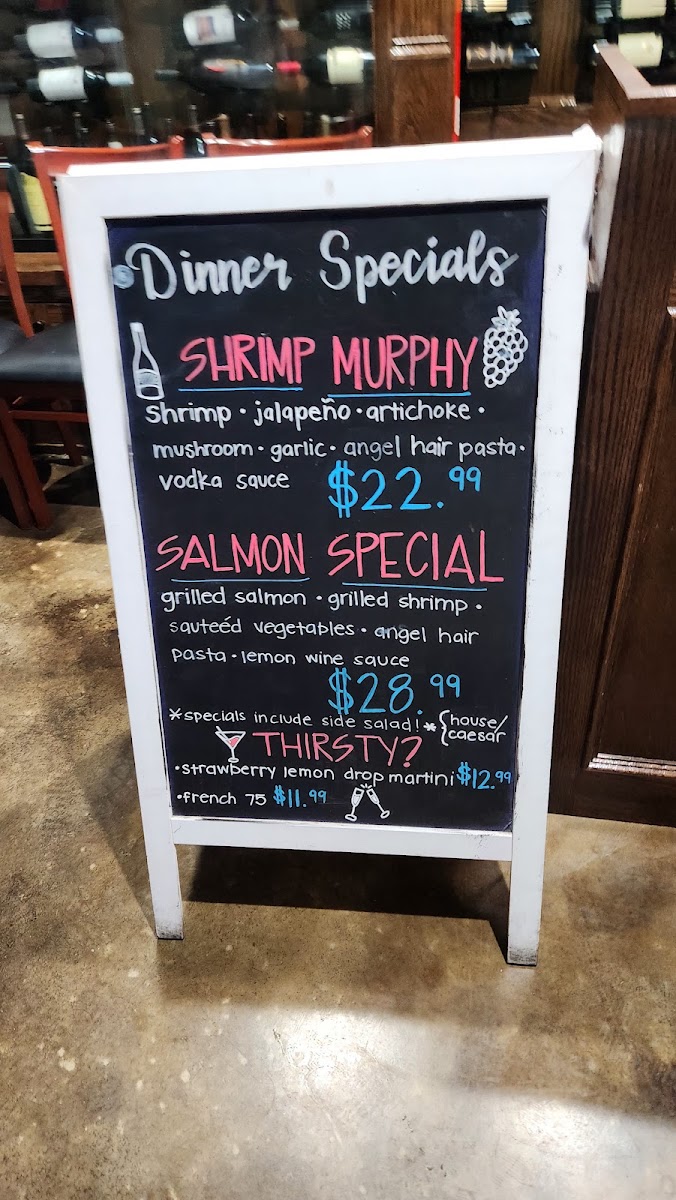 Dinner Specials
SHRIMP MURPHY
shrimp • jalapeño • artichoke •
mushroom • garlic • angel hair pasta •
vodka sauce $22.99
SALMON SPECIAL
grilled salmon • grilled shrimp •
sauteéd vegetables • angel hair
pasta • lemon wine sauce
$28.99
*specials include side salad!* {house/
caesar
THIRSTY?
•strawberry lemon drop martini $12.99
•french 75 $11.99